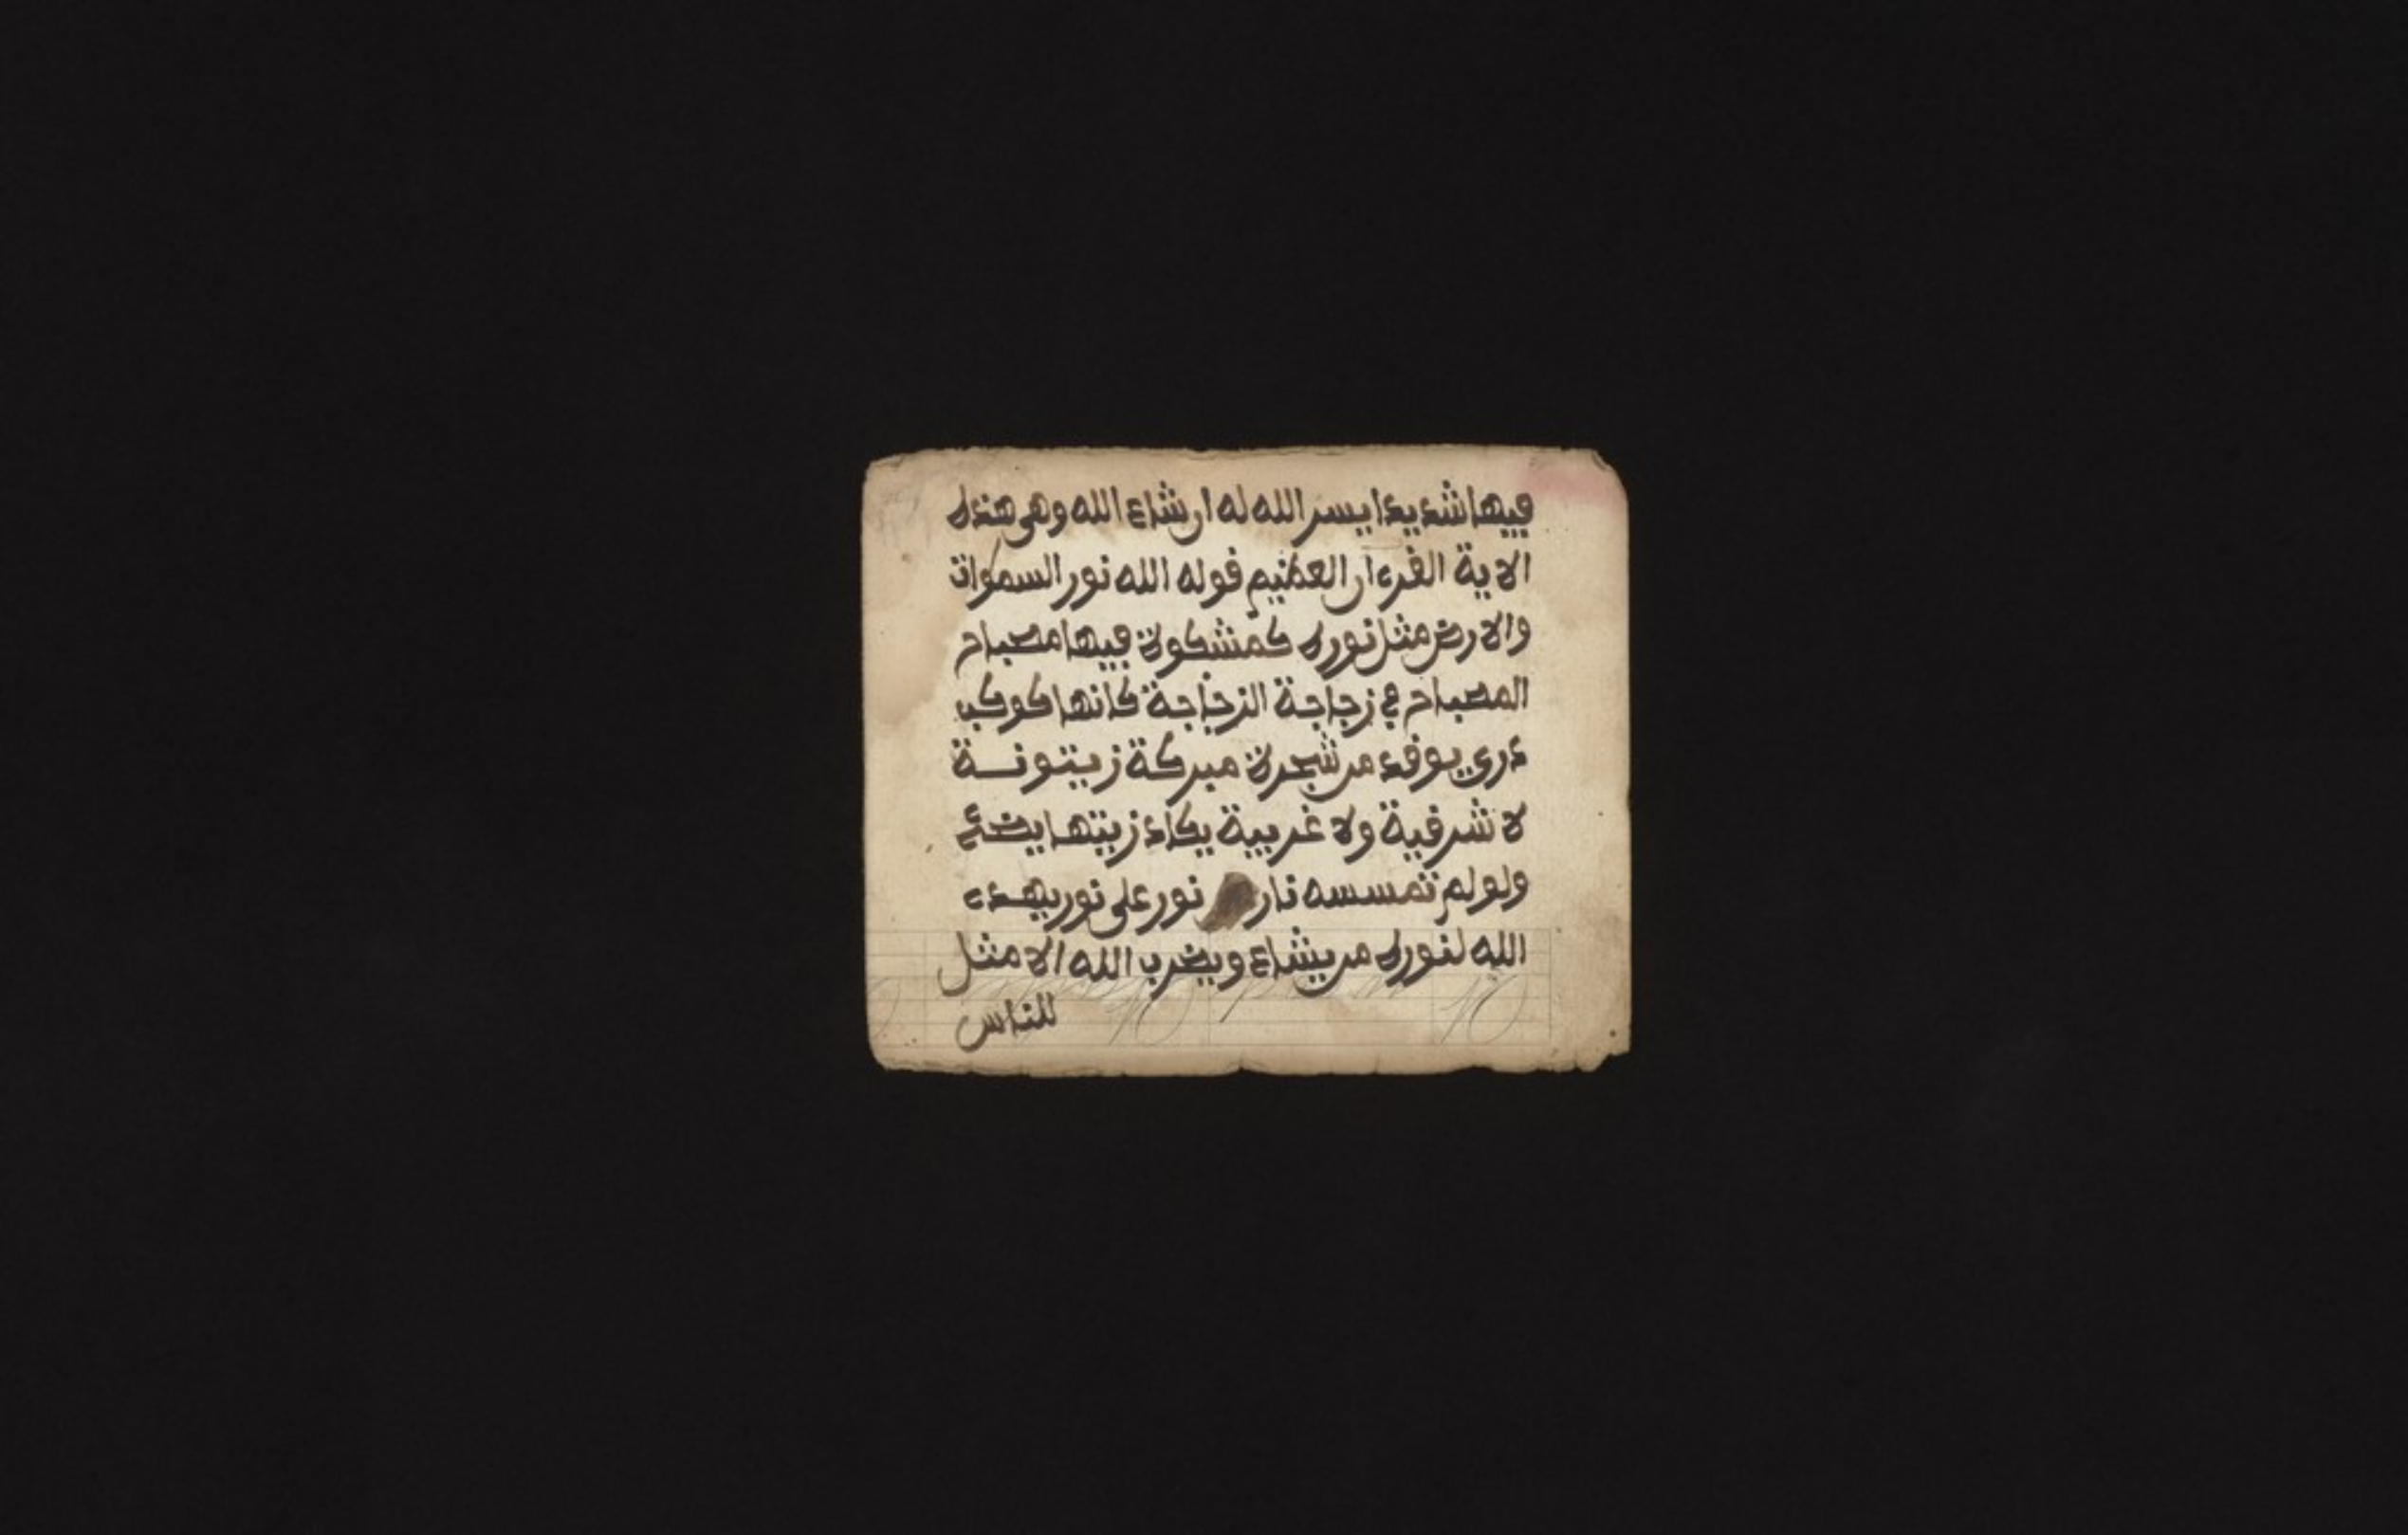 فيها شديدا يسر الله له ان شاء الله وهى هذه
الاية القرءان العظيم قوله الله نور السموات
والارض مثل نوره كمشكوة فيها مصباح
المصباح في زجاجة الزجاجة كانها كوكب
دري يوقد من شجرة مبركة زيتونة
لا شرقية ولا غربية يكاد زيتها يضئ
ولو لم تمسسه نار نور على نور يهدے
الله لنوره من يشاء ويضرب الله الامثل
للناس